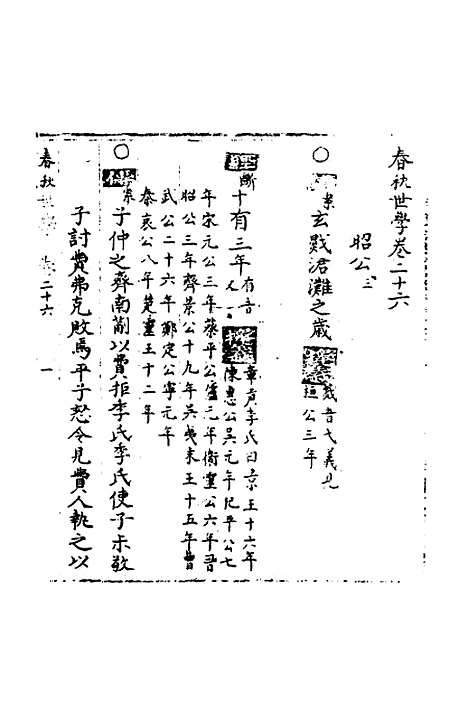 春秋世學卷二十六
昭公三
○ 案 玄戣涒灘之歲 戣音弋義見
桓公三年
經 斷 十有三年 有音又 章彦李氏曰京王十六年
陳惠公吴元年杞平公七
年宋元公三年蔡平公廬元年衛靈公六年晉
昭公三年齊景公十九年吴夷末王十五年曹
武公二十六年鄭定公寧元年
秦哀公八年楚靈王十二年
○ 傳 案 子仲之齊南蒯以費拒季氏季氏使子未敬
子討費弗克敗焉平子怒令見費人執之以
春秋 二十六 一